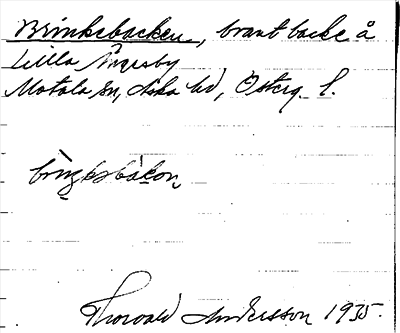 Brinkebacken, brant backe å
Lilla Ängesby
Motala sn, Aska hd, Österg. l.
brìŋkəbákən
Thorvald Andersson 1935.